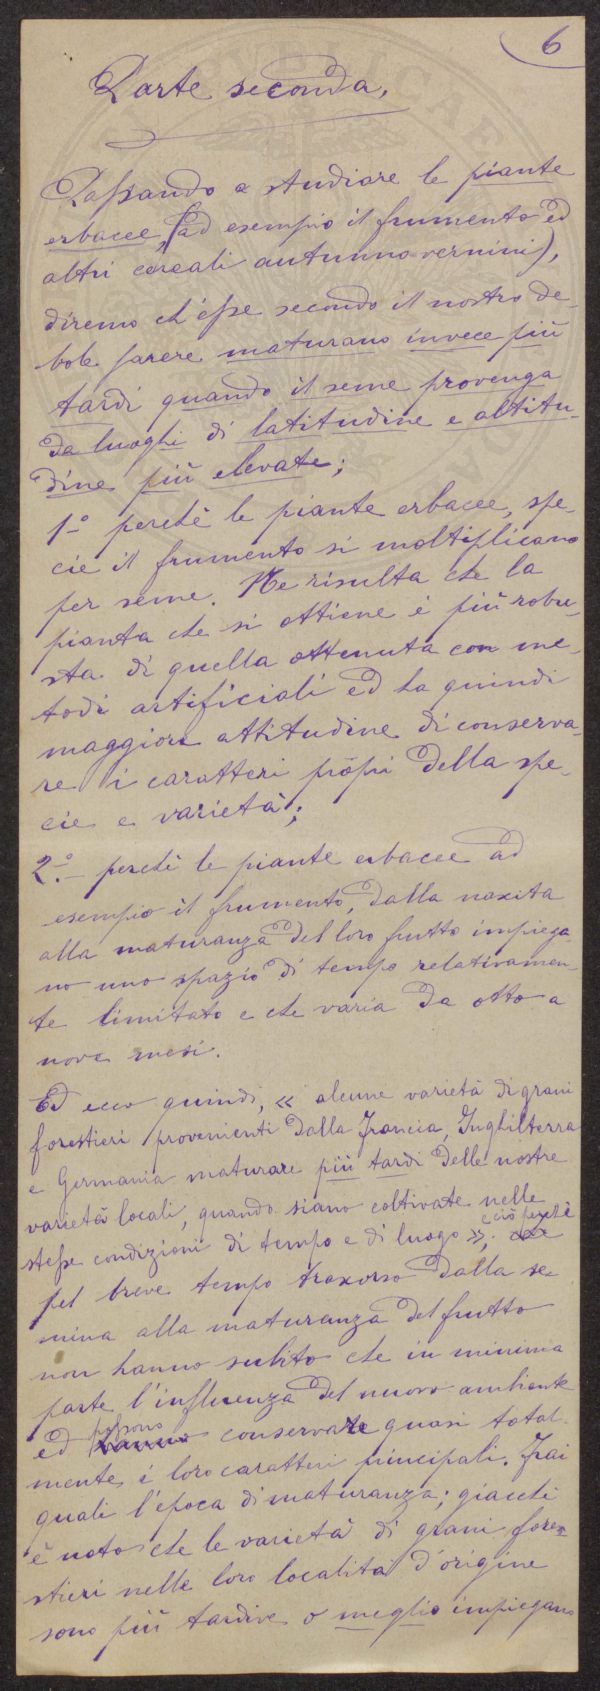 6
Parte seconda.
Passando a studiare le piante
erbacee, (ad esempio il frumento ed
altri cereali autunno-vernini),
diremo ch'esse secondo il nostro de-
bole parere maturano invece più
tardi quando il seme provenga
da luoghi di latitudine e altitu-
dine più elevate;
1º perchè le piante erbacee, spe-
cie il frumento si moltiplicano
per seme. Ne risulta che la
pianta che si ottiene è più robu-
sta di quella ottenuta con me-
todi artificiali ed ha quindi
maggiore attitudine di conserva-
re i caratteri propri della spe-
cie e varietà;
2º.- perchè le piante erbacee ad
esempio il frumento, dalla nascita
alla maturanza del loro frutto impiega-
no uno spazio di tempo relativamen-
te limitato e che varia da otto a
nove mesi.
Ed ecco quindi, « alcune varietà di grani
forestieri provenienti dalla Francia, Inghilterra
e Germania maturare più tardi delle nostre
varietà locali, quando siano coltivate nelle
stesse condizioni di tempo e di luogo »; ciò perchè
pel breve tempo trascorso dalla se-
mina alla maturanza del frutto
non hanno subito che in minima
parte l'influenza del nuovo ambiente
ed possono conservare quasi total-
mente i loro caratteri principali. Frai
quali l'epoca di maturanza; giacchè
è noto che le varietà di grani fore-
stieri nelle loro località d'origine
sono più tardive o meglio impiegano